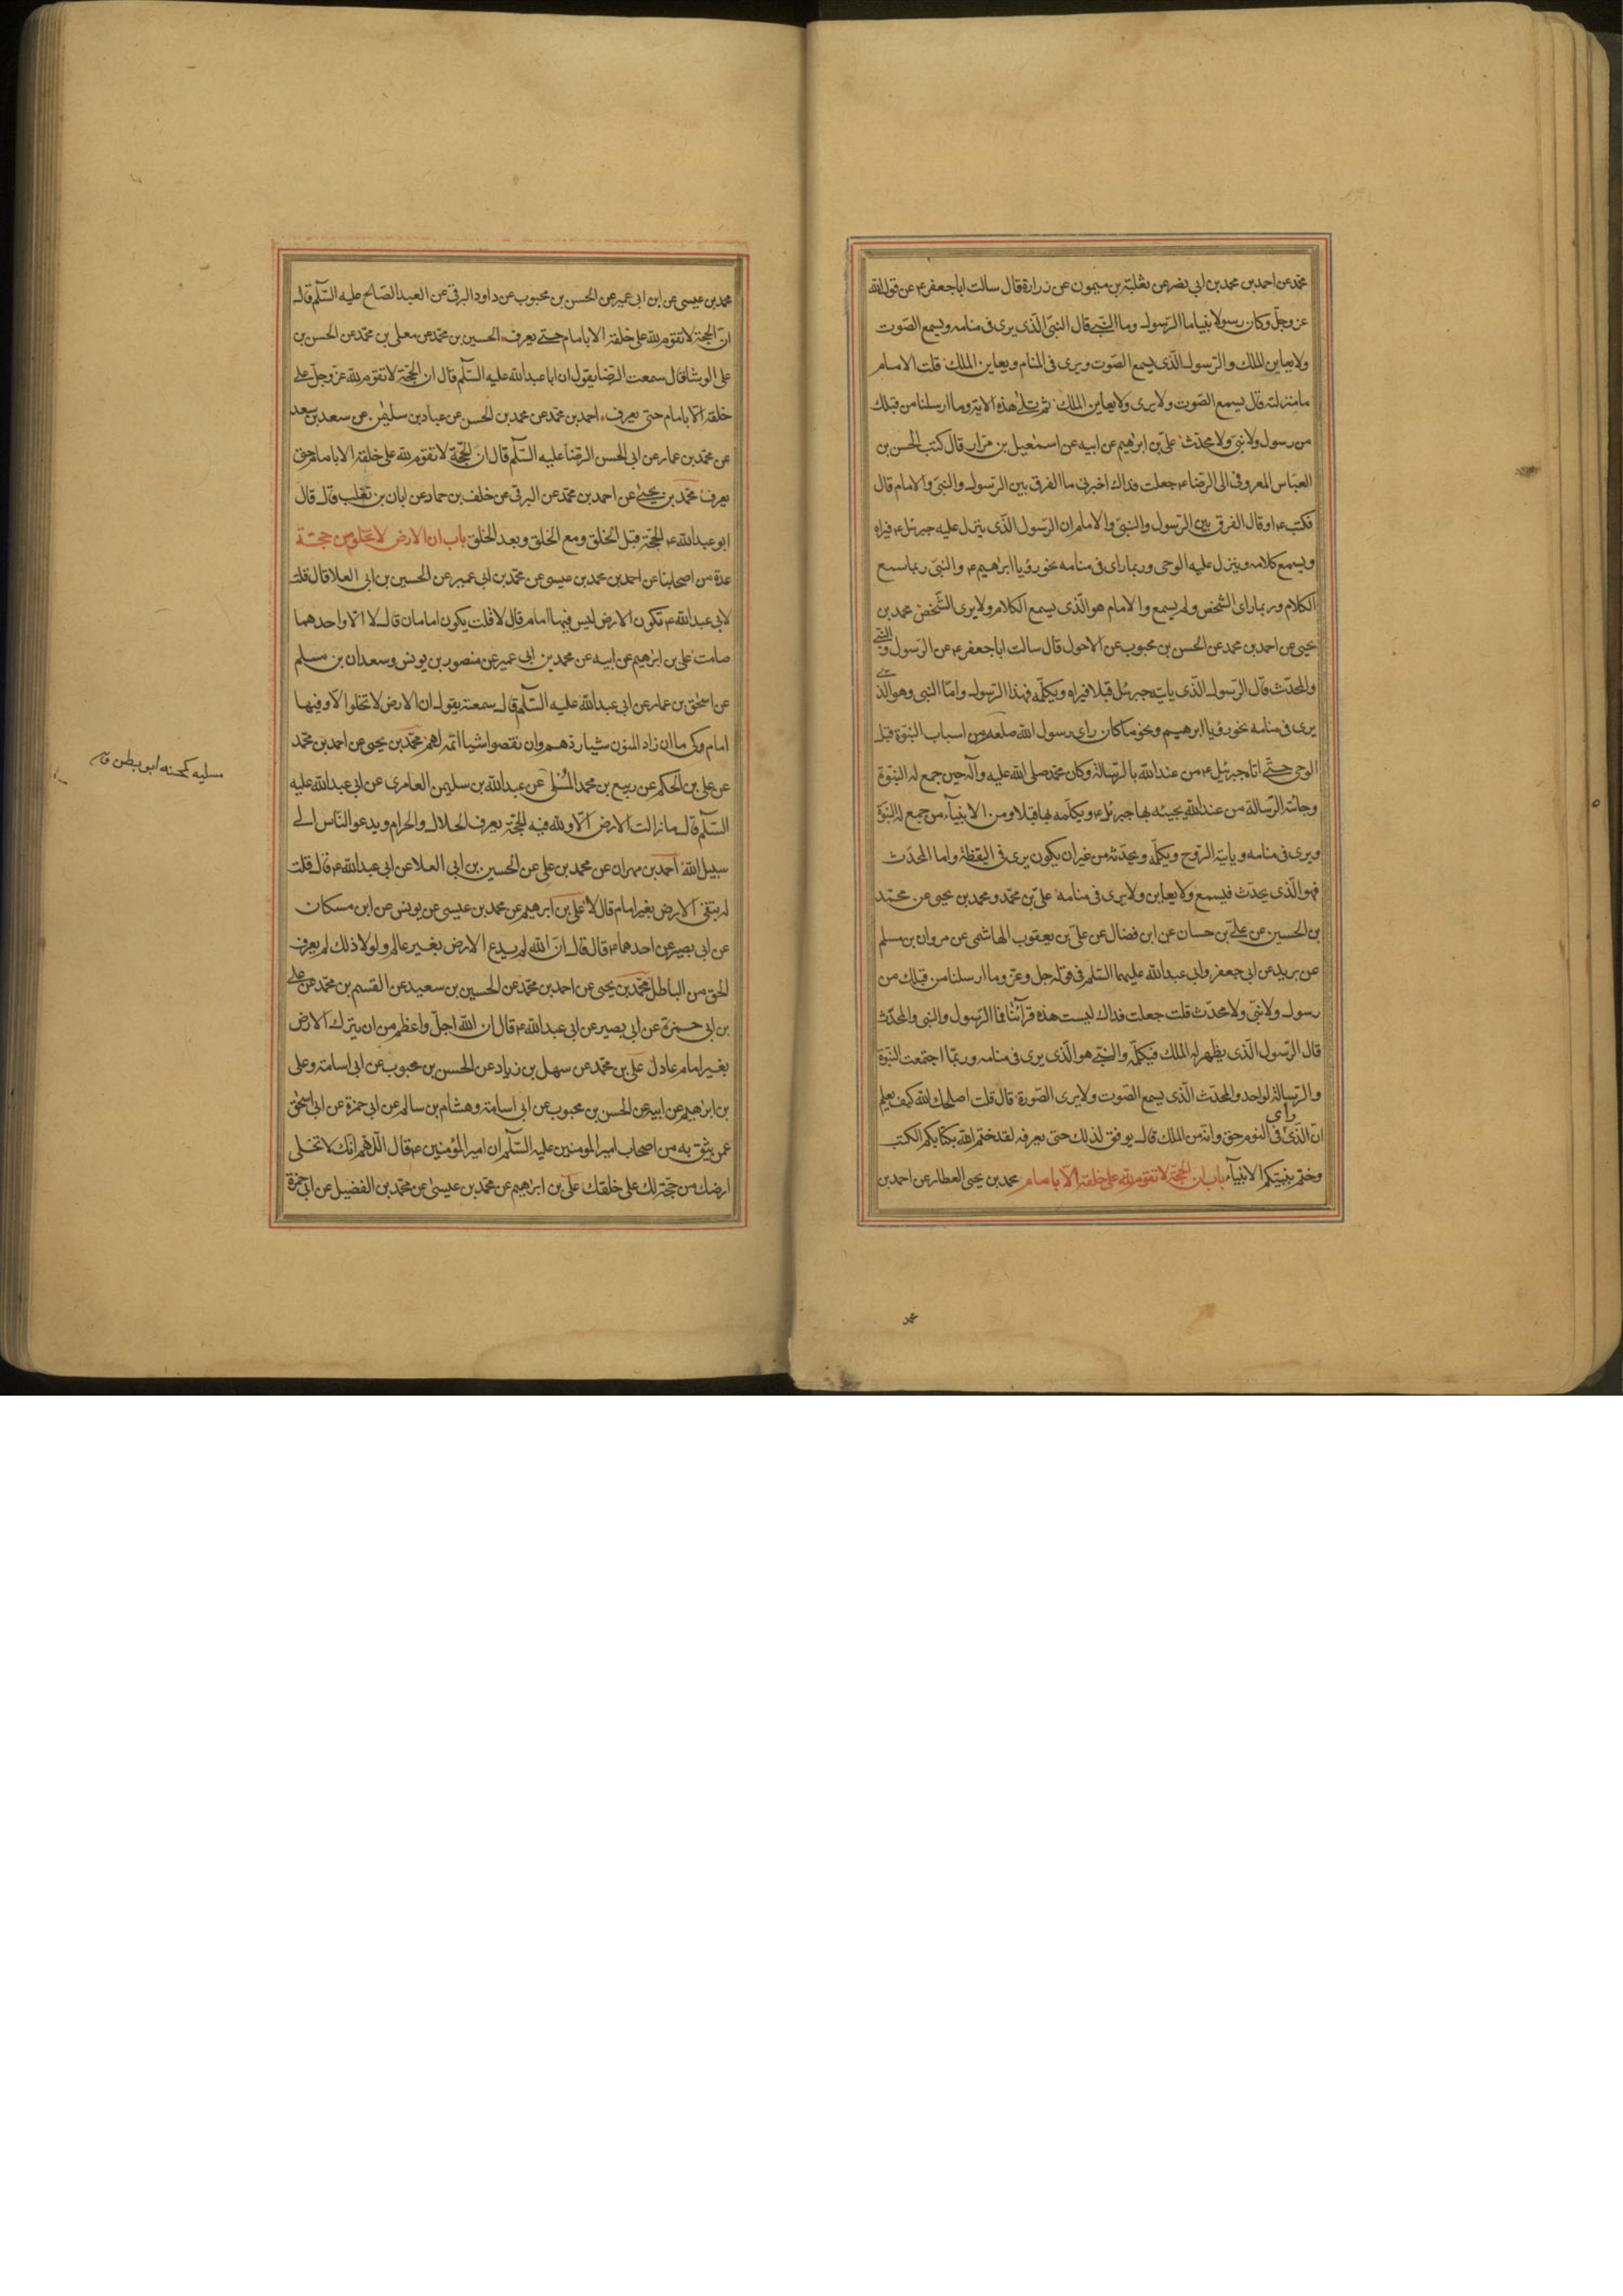 محمد عن احمد بن محمد بن ابي نصر عن ثعلبة بن ميمون عن زرارة قال سالت ابا جعفر ع عن قول الله
عز وجل وكان رسولا نبيا ما الرسول وما النبي قال النبي الذي يرى في منامه ويسمع الصوت
ولا يعاين الملك والرسول الذي يسمع الصوت ويرى في المنام ويعاين الملك قلت الامام
ما منزلته قال يسمع الصوت ولا يرى ولا يعاين الملك ثم تلى هذه الاية وما ارسلنا من قبلك
من رسول ولا نبي ولا محدث علي بن ابرهيم عن ابيه عن اسمعيل بن مرار قال كتب الحسن بن
العباس المعروفي الى الرضا ع جعلت فداك اخبرني ما الفرق بين الرسول والنبي والامام قال
فكتب ع او قال الفرق بين الرسول والنبي والامام ان الرسول الذي ينزل عليه جبرئل ع فيراه
ويسمع كلامه وينزل عليه الوحي وربما راى في منامه نحو رؤيا ابرهيم ع والنبي ربما سمع
الكلام وربما راى الشخص ولم يسمع والامام هو الذي يسمع الكلام ولا يرى الشخص محمد بن
يحيى عن احمد بن محمد عن الحسن بن محبوب عن الاحول قال سالت ابا جعفر ع عن الرسول والنبي
والمحدث قال الرسول الذي ياتيه جبرئل قبلا فيراه ويكلمه فهذا الرسول واما النبي وهو الذي
يرى في منامه نحو رؤيا ابرهيم ونحو ما كان راى رسول الله صلعم من اسباب النبوة قبل
الوحي حتى اتاه جبرئل ع من عند الله بالرسالة وكان محمد صلى الله عليه وآله حين جمع له النبوة
وجائته الرسالة من عند الله يجيئه بها جبرئل ع ويكلمه بها قبلا ومن الانبياء من جمع له النبوة
ويرى في منامه وياتيه الروح ويكلمه ويحدثه من غير ان يكون يرى في اليقظة واما المحدث
فهو الذي يحدث فيسمع ولا يعاين ولا يرى في منامه علي بن محمد ومحمد بن يحيى عن محمد
بن الحسين عن علي بن حسان عن ابن فضال عن علي بن يعقوب الهاشمي عن مروان بن مسلم
عن بريد عن ابي جعفر وابي عبد الله عليهما السلم في قوله جل وعز وما ارسلنا من قبلك من
رسول ولا نبي ولا محدث قلت جعلت فداك ليست هذه قرآئتنا فما الرسول والنبي والمحدث
قال الرسول الذي يظهر له الملك فيكلمه والنبي هو الذي يرى في منامه وربما اجتمعت النبوة
والرسالة لواحد والمحدث الذي يسمع الصوت ولا يرى الصورة قال قلت اصلحك الله كيف يعلم
ان الذي راى في النوم حق وانه من الملك قال يوفق لذلك حتى يعرفه لقد ختم الله بكتابكم الكتب
وختم بنبيكم الانبياء باب ان الحجة لا تقوم لله على خلقه الا بامام محمد بن يحيى العطار عن احمد بن
محمد
محمد بن عيسى عن ابن ابي عمير عن الحسن بن محبوب عن داود البرقي عن العبد الصالح عليه السلم قال
ان الحجة لا تقوم لله على خلقه الا بامام حتى يعرف الحسين بن محمد عن معلى بن محمد عن الحسن بن
علي الوشا قال سمعت الرضا يقول ان ابا عبد الله عليه السلم قال ان الحجة لا تقوم لله عز وجل على
خلقه الا بامام حتى يعرف احمد بن محمد عن محمد بن الحسن عن عباد بن سليمن عن سعد بن سعد
عن محمد بن عمار عن ابي الحسن الرضا عليه السلم قال ان الحجة لا تقوم لله على خلقه الا بامام حتى
يعرف محمد بن يحيى عن احمد بن محمد عن البرقي عن خلف بن حماد عن ابان بن تغلب قال قال
ابو عبد الله ع الحجة قبل الخلق ومع الخلق وبعد الخلق باب ان الارض لا تخلو من حجة
عدة من اصحابنا عن احمد بن محمد بن عيسى عن محمد بن ابي عمير عن الحسين بن ابي العلا قال قلت
لابي عبد الله ع تكون الارض ليس فيها امام قال لا قلت يكون امامان قال لا الا واحدهما
صامت علي بن ابرهيم عن ابيه عن محمد بن ابي عمير عن منصور بن يونس وسعدان بن مسلم
عن اسحق بن عمار عن ابي عبد الله عليه السلم قال سمعته يقول ان الارض لا تخلوا الا وفيها
امام كي ما ان زاد المؤمنون شيئا ردهم وان نقصوا شيئا اتمه لهم محمد بن يحيى عن احمد بن محمد
عن علي بن الحكم عن ربيع بن محمد المسلي عن عبد الله بن سليمن العامري عن ابي عبد الله عليه
السلم قال ما زالت الارض الا ولله فيه الحجة يعرف الحلال والحرام ويدعو الناس الى
سبيل الله احمد بن مهران عن محمد بن علي عن الحسين بن ابي العلا عن ابي عبد الله ع قال قلت
له تبقى الارض بغير امام قال لا علي بن ابرهيم عن محمد بن عيسى عن يونس عن ابن مسكان
عن ابي بصير عن احدهما ع قال قال ان الله لم يدع الارض بغير عالم ولولا ذلك لم يعرف
الحق من الباطل محمد بن يحيى عن احمد بن محمد عن الحسين بن سعيد عن القسم بن محمد عن علي
بن ابي حمزة عن ابي بصير عن ابي عبد الله ع قال ان الله اجل واعظم من ان يترك الارض
بغير امام عادل علي بن محمد عن سهل بن زياد عن الحسن بن محبوب عن ابي اسامة وعلي
بن ابرهيم عن ابيه عن الحسن بن محبوب عن ابي اسامة وهشام بن سالم عن ابي حمزة عن ابي اسحق
عمن يثق به من اصحاب امير المومنين عليه السلم ان امير المؤمنين ع قال اللهم انك لا تخلى
ارضك من حجة لك على خلقك علي بن ابرهيم عن محمد بن عيسى عن محمد بن الفضيل عن ابي حمزة
مسليه كمحسنه ابو بطن